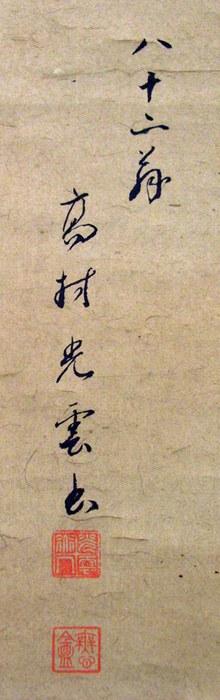 八十二翁
高村光雲書